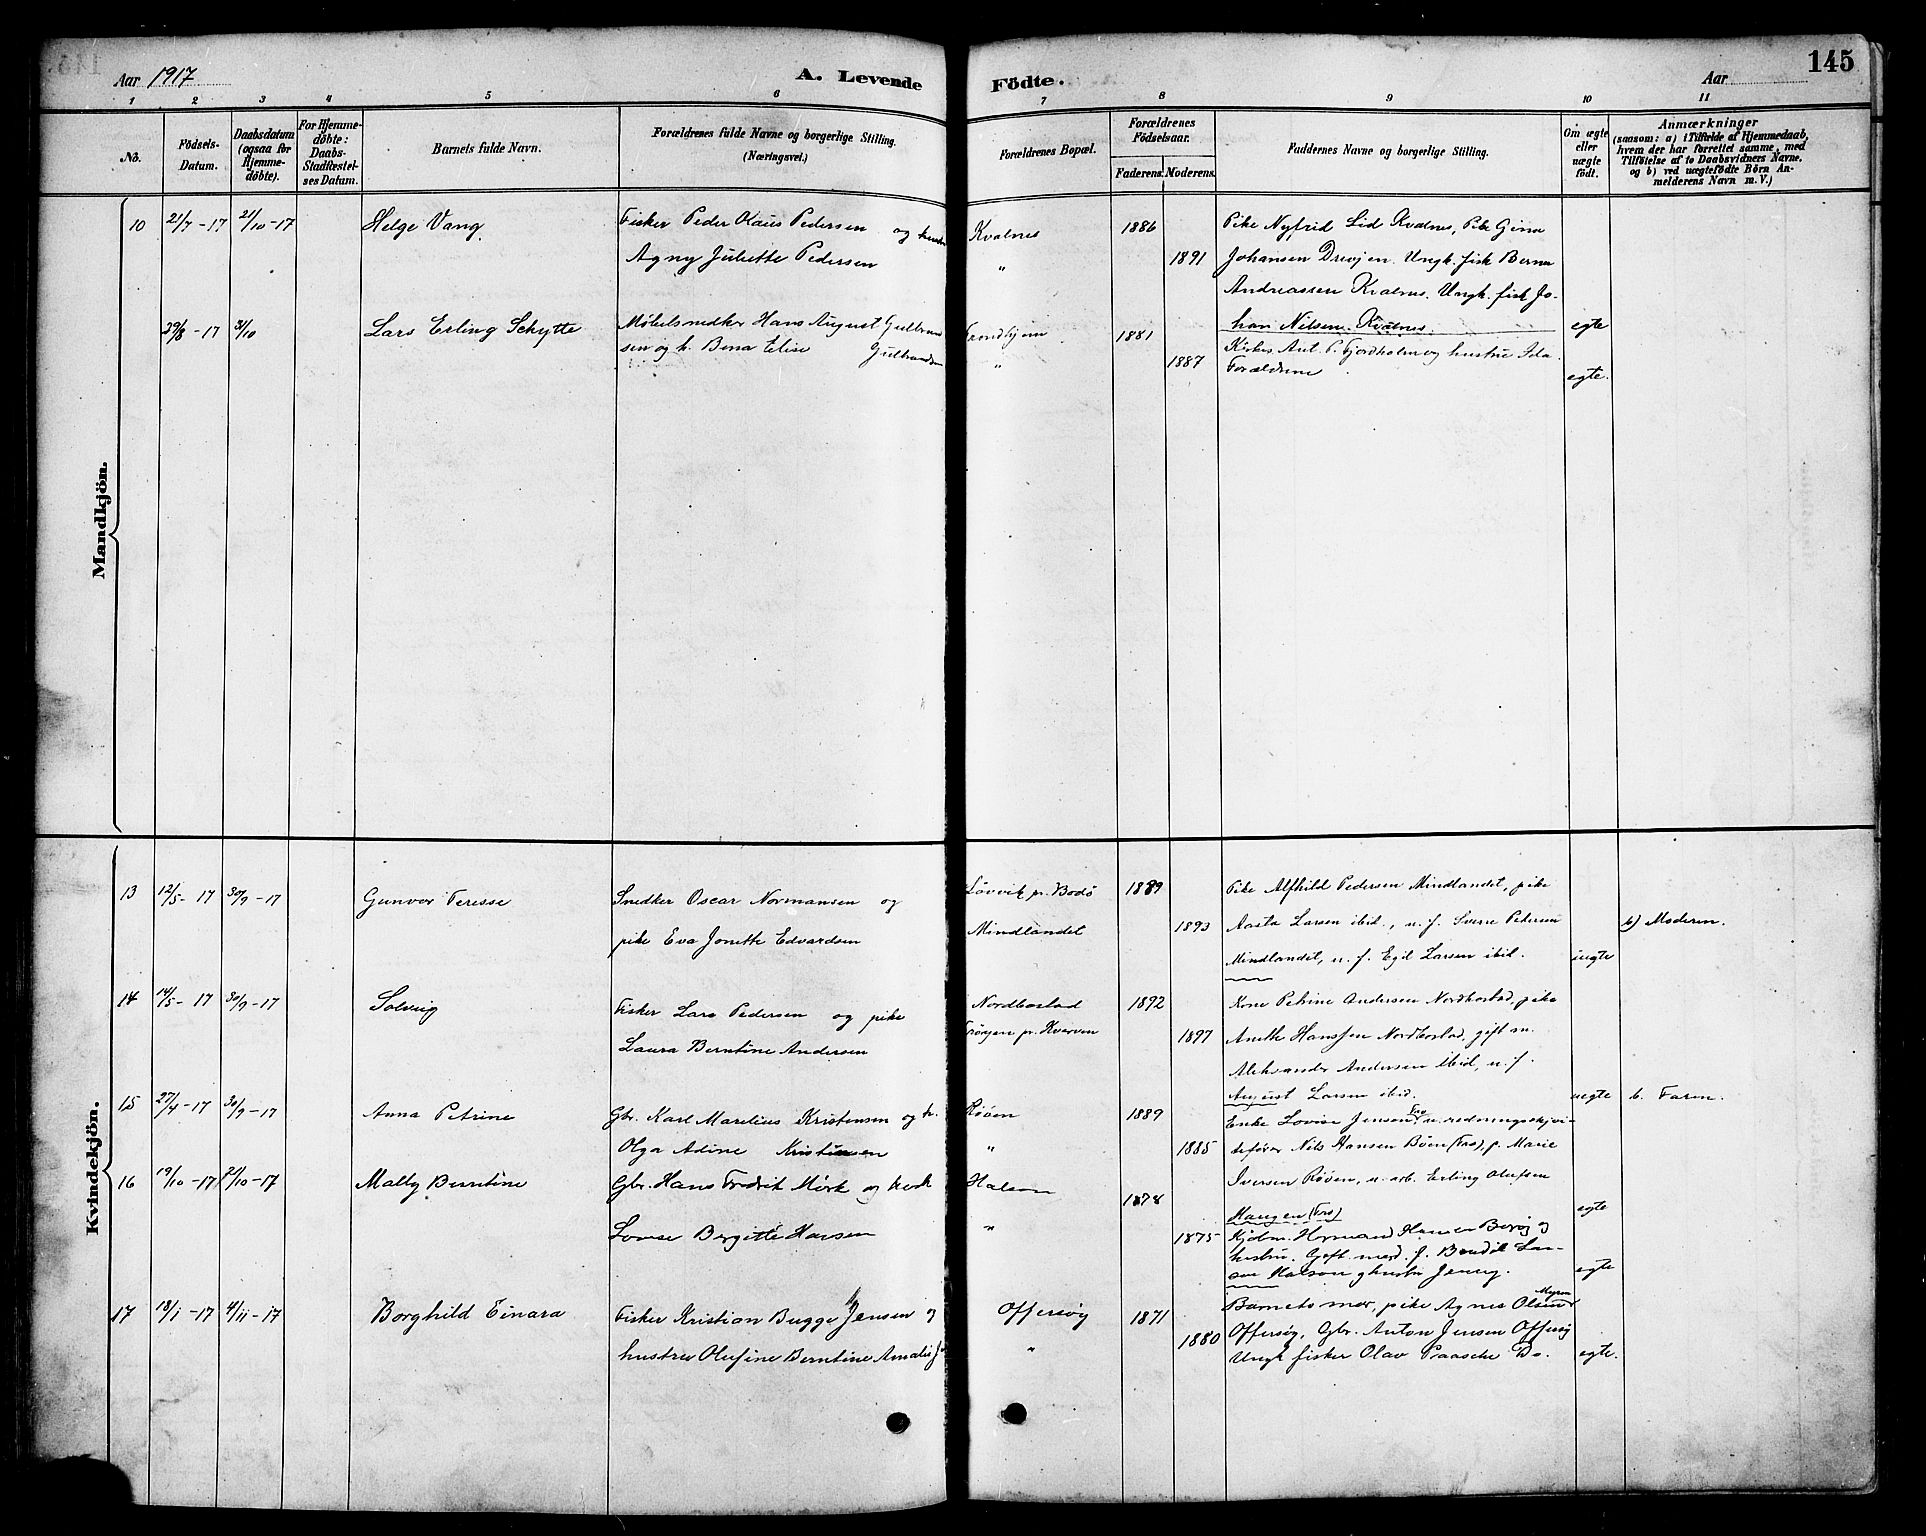 Aar 1917
A. Levende
Födte.
Aar
145
1 2 3 4 5 6 7 8 9 10 11
No.
Födsels-
Datum.
Daabsdatum
(ogsaa for
Hjemme-
döbte).
For Hjemme-
döbte:
Daabs-
Stadfæstel-
ses Datum.
Barnets fulde Navn.
Forældrenes fulde Navne og borgerlige Stilling.
(Næringsvei.)
Forældrenes Bopæl.
Forældrenes
Födselsaar.
Faderens.
Moderens.
Faddernes Navne og borgerlige Stilling.
Om ægte
eller
uægte
födt.
Anmærkninger
(saasom: a) i Tilfælde af Hjemmedaab,
hvem der har forrettet samme, med
Tilföielse af to Daabsvidners Navne.
og b) ved uægtefödte Börn An-
melderens Navn m. V.)
Mandkjön.
10 21/7-17 21/10-17 Helge Vang Fisker Peder Olaus Pedersen og hustru Kvalnes 1886 Pike Nyfrid Lid Kvalnes, Pike Gina
Agny Juliette Pedersen " 1891 Johansen Drevjen. Ungk. fisk Berna
Andreassen Kvalnes. Ungk. fisk Jo-
han Nilsen Kvalnes. egte
29/8-17 3/10 Lars Erling Schytte Møbelsnedker Hans August Gulbrand Trondhjem 1881
sen og h. Bena Elise Gulbrandsen " 1887 Kirkes. Ant. P. Fjordholm og hustru Ida.
Forældrene egte.
Kvindekjön.
13 12/5-17 30/9-17 Gunvor Teresse Snedker Oscar Normansen og Løvvik p. Bodö 1889 Pike Alfhild Pedersen Mindlandet, pike
pike Eva Jonette Edvardsen Mindlandet 1893 Aasta Larsen ibid., u. f. Sverre Pedersen b) Moderen.
Mindlandet, u. f. Egil Larsen ibid. uegte
14 14/5-17 30/9-17 Solveig Fisker Lars Pedersen og pike Nordbostad 1892 Kone Petrine Andersen Nordbostad, pike
Laura Berntine Andersen 1897 Anette Hanssen Nordbostad, gift m.
Aleksander Andersen ibid, u. f.
August Larsen ibid. uegte b. Faren.
15 27/4-17 30/9-17 Anna Petrine Gbr. Karl Marelius Kristensen og h. Røøen 1889 Enke Lovise Jensen
Olga Adine Kristensen " 1885 Nils Hansen Böen (Tro), p. Marie
Iversen Röøen, u. arb. Erling Olufsen
Haugen (Tro) egte
16 19/10-17 21/10-17 Mally Berntine Gbr. Hans Fredrik Mörk og hustr Halsøn 1878
Lovise Birgitte Hansen " 1875 Kjøbm. Herman Hansen Berøy og
hustru. Gift mand. f. Bendik Lar-
sen Halsøn og hustr Jenny. egte
17 18/1-17 4/11-17 Borghild Einara Fisker Kristian Bugge Jensen og Offersøy 1871 Barnets mor, pike Agnes Olsen
hustru Olufine Berntine Amalie J " 1880 Offersøy, Gbr. Anton Jensen Offersøy
Ungk fisker Olav Paasche Do. egte.